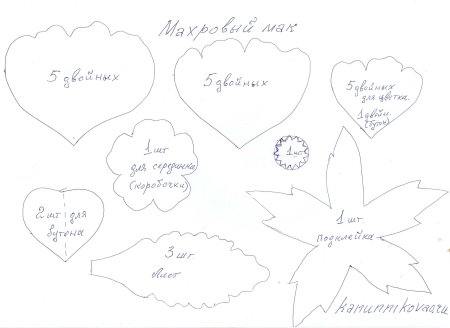 Махровый мак
5 двойных
5 двойных
5 двойных
для цветка.
1 двойн.
(бутон)
1 шт
для серединки
(коробочки)
1 шт
2 шт для
бутона
1 шт
подклейка
3 шт
Лист